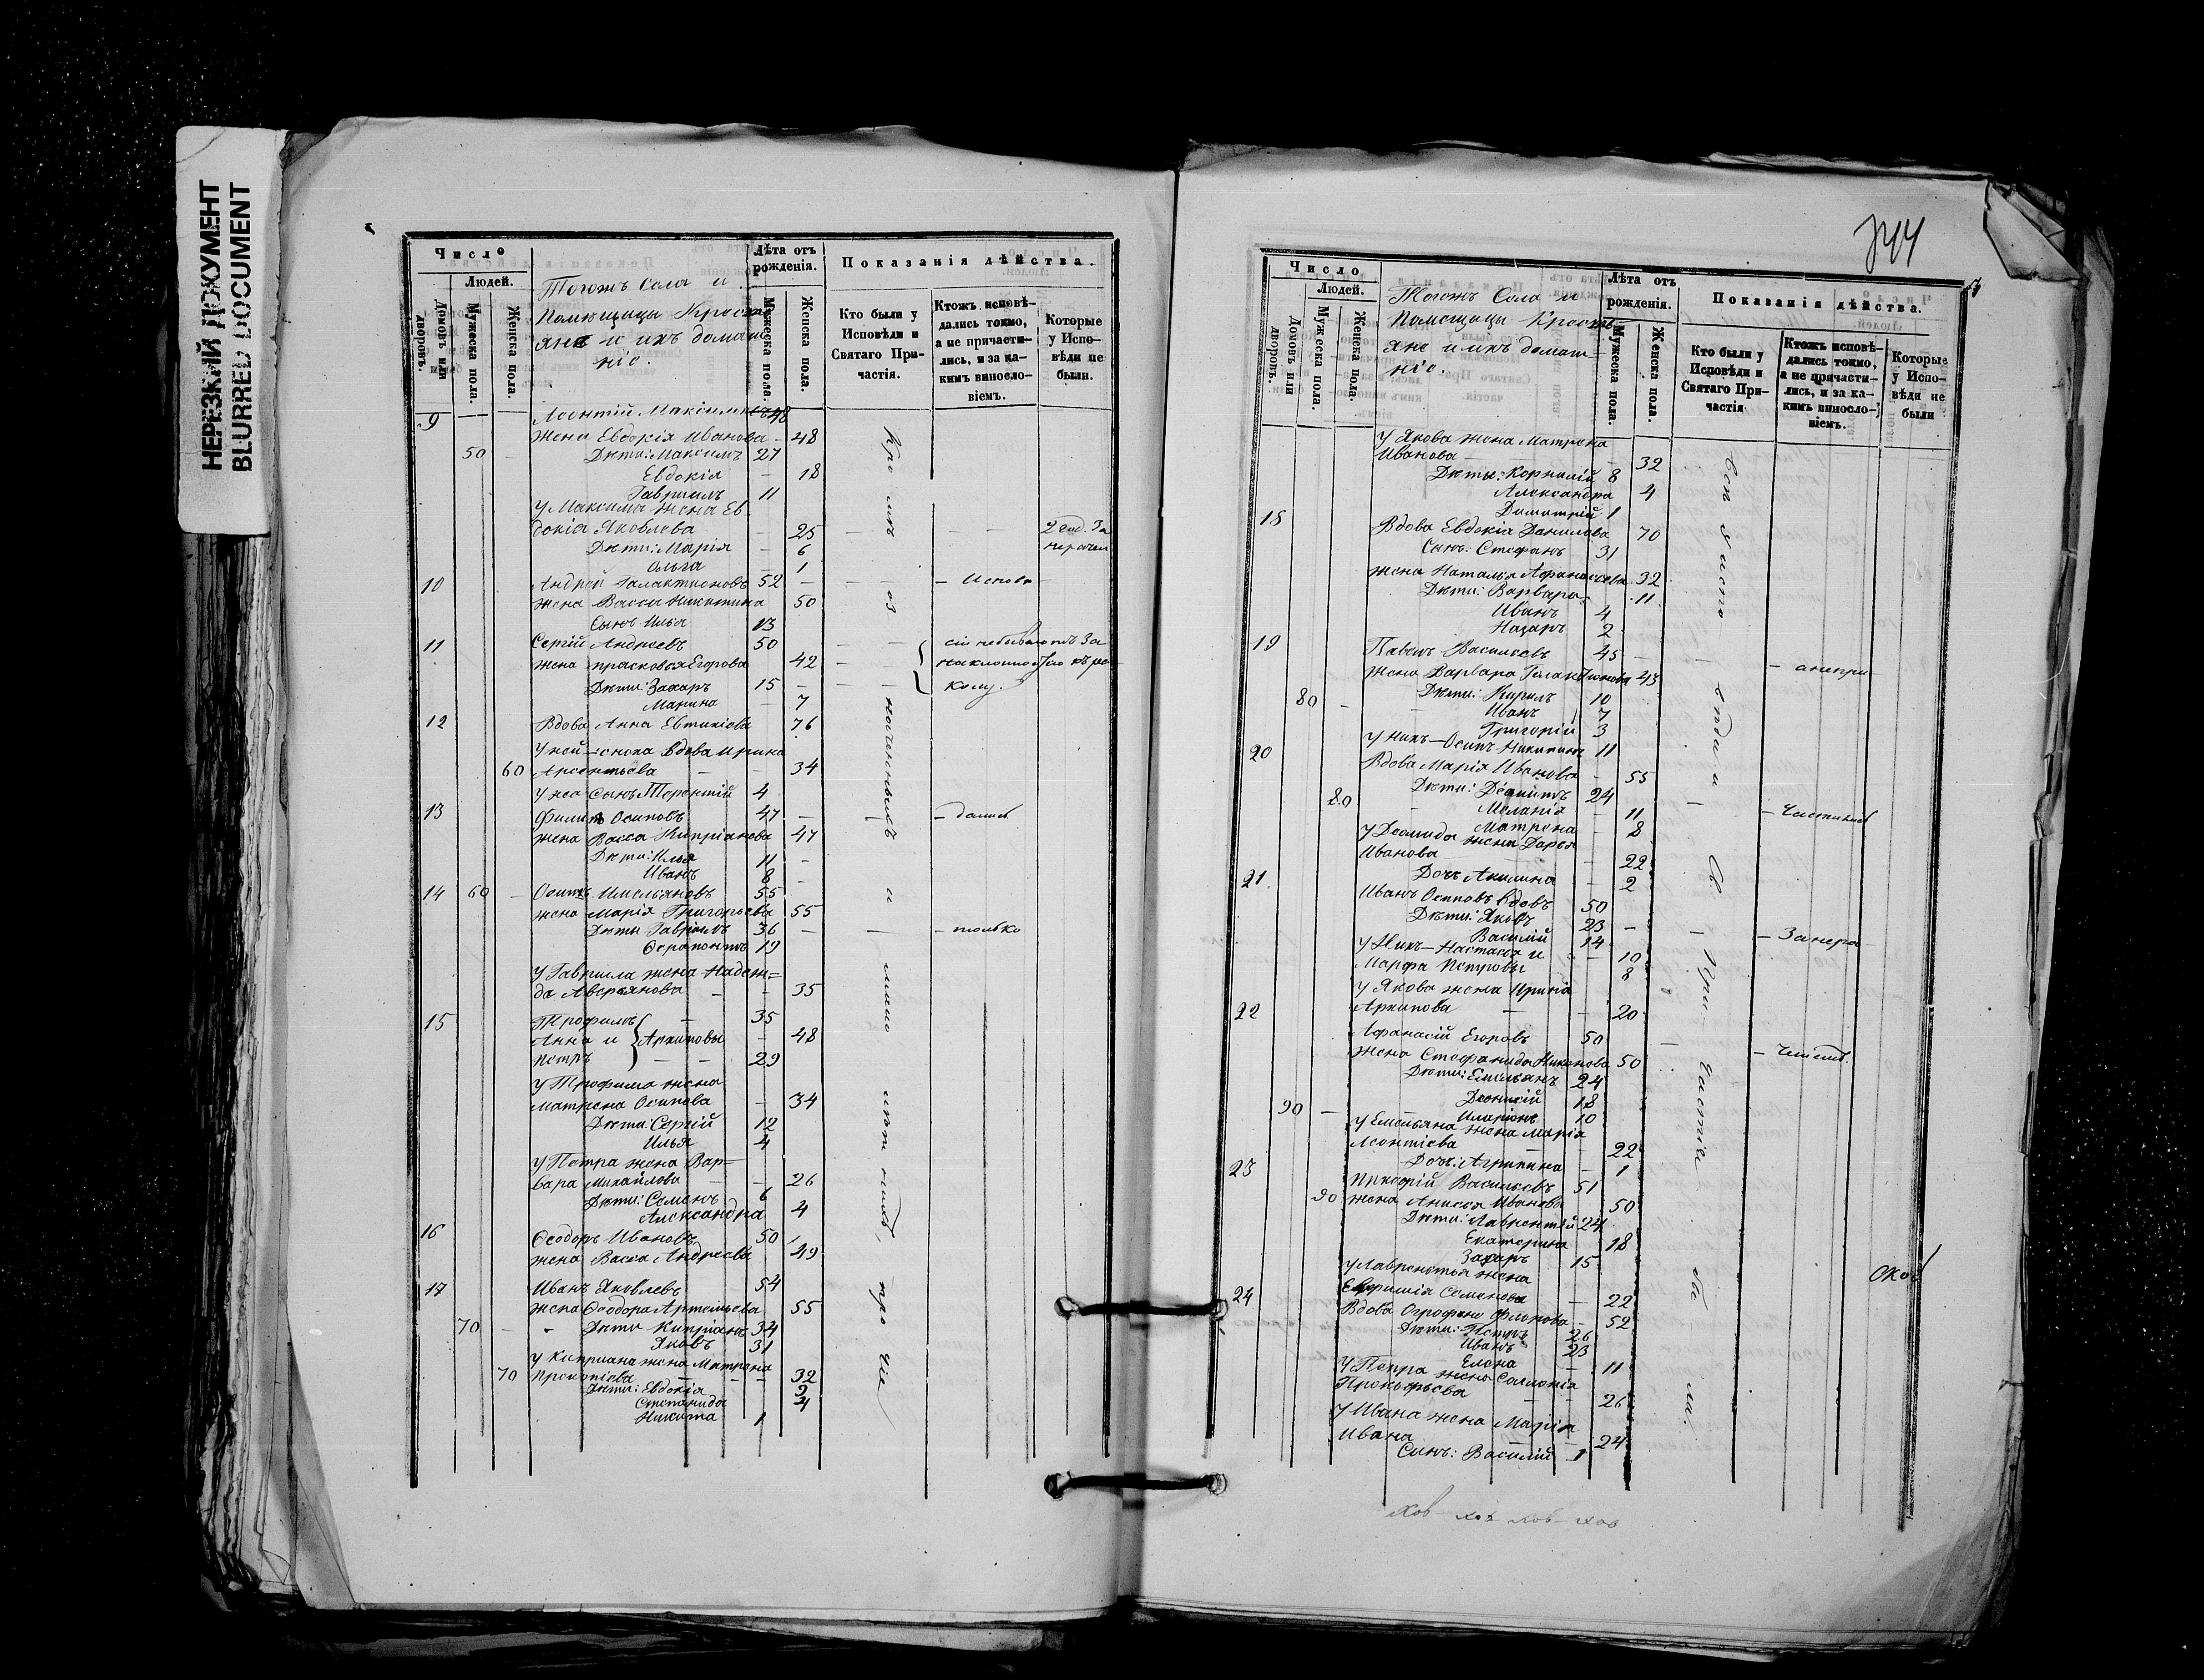 НЕРЕЗКИЙ ДОКУМЕНТ
BLURRED DOCUMENT
Число
Людей.
Домовъ или дворовъ.
Мужеска пола.
Женска пола.
Тогожъ Села и
Помѣщицы Кресть
яне и ихъ домаш
ніе.
Лѣта отъ рожденія.
Мужеска пола.
Женска пола.
Показанія дѣйства.
Кто были у Исповѣди и Святаго Причастія.
Ктожъ исповѣдались токмо, а не причастились, и за какимъ винословіемъ.
Которые у Исповѣди не были.
9 Леонтій Максимовъ 48
жена Евдокія Иванова - 48
50 Дѣти: Максимъ 27
Евдокія - 18
Гавриилъ 11
У Максима жена Ев
докія Яковлева - 25
Дѣти: Марія - 6
Ольга - 1
10 Андрей Галактионовъ 52 - Испове
жена Васса Никитина 50
Сынъ Илья 13
11 Сергій Андреевъ 50 сіи небываютъ За
жена прасковья Егорова 42 наклонностію къ рас
Дѣти: Захаръ 15 колу.
Марина - 7
12 Вдова Анна Евтихіева 76
У ней - сноха Вдова Ирина
60 Арсентьева - - 34
У нея Сынъ Терентій 4
13 Филипъ Осиповъ 47 - дались
жена Васса Кипріанова 47
Дѣти: Илья 11
Иванъ 8
14 60 - Осипъ Емельяновъ 55
жена Марія Григорьева 55
Дѣти Гавриилъ 36 - только
Ферапонтъ 19
У Гавриила жена Надеж=
да Аверьянова - - 35
15 Трофимъ - 35
Анна и } Архиповы - 48
Петръ - - 29
У Трофима жена
Матрена Осипова - 34
Дѣти: Сергій 12
Илья 4
У Петра жена Вар=
вара Михайлова - - 26
Дѣти: Семенъ 6
Александра 4
16 Ѳеодоръ Ивановъ 50
жена Васса Андреева 49
17 Иванъ Яковлевъ 54
жена Ѳеодора Артемьева 55
70 - Дѣти Кипріанъ 34
Яковъ 31
У Киприана жена Матрена
70 Прокопіева - - - 32
Дѣти: Евдокія 9
Степанида 4
Никита 1
Кромѣ означенныхъ и мимо
прочіе
344
Число
Людей.
Домовъ или дворовъ.
Мужеска пола.
Женска пола.
Тогожъ Села и
Помещицы Кресть
яне и ихъ домаш=
ніе.
Лѣта отъ рожденія.
Мужеска пола.
Женска пола.
Показанія дѣйства.
Кто были у Исповѣди и Святаго Причастія
Ктожъ исповѣдались токмо, а не причастились, и за какимъ винословіемъ.
Которые у Исповѣди не были
У Якова жена Матрена
Иванова - 32
Дѣти: Корнилій 8
Александра 4
Димитрій 1
18 Вдова Евдокія Данилова 70
Сынъ: Стефанъ 31
жена Наталья Афанасьева 32
Дѣти: Варвара 11
Иванъ 4
Назаръ 2
19 Павелъ Васильевъ 45 - анепри
жена Варвара Галактіонова 43
80 - Дѣти: Кирилъ 10
Иванъ 7
Григорій 3
У Нихъ - Осипъ Никитинъ 11
20 Вдова Марія Иванова - 55
80 Дѣти: Деомидъ 24
Меланія - 11 - Частились
Матрена - 8
У Деомида жена Дарья
Иванова - 22
Дочь Акилина - 2
21 Иванъ Осиповъ вдовъ 50
Дѣти: Яковъ 23
Василій 14 - Занера
У Нихъ - Настасья и - 10
Марфа Петровы 8
У Якова жена Ирина
Архипова - - 20
22 Афанасій Егоровъ 50
жена Стефанида Никонова 50
Дѣти: Емельянъ 24
Деонисій 18
90 - Иларіонъ 10
У Емельяна жена Марія
Леонтіева - 22
Дочь: Агрипина - 1
23 Прокофій Васильевъ 51
90 жена Анисья Иванова 50
Дѣти: Лаврентій 24
Екатерина 18
Захаръ 15
У Лаврентья жена
Евфимія Семенова - 22
24 Вдова Огрофена Флорова - 52
Дѣти: Петръ 26
Иванъ 23
Елена - 11
У Петра жена Соломонія
Прокофьева - 26
У Ивана жена Марія
Ивана - 24
Сынъ: Василій 1